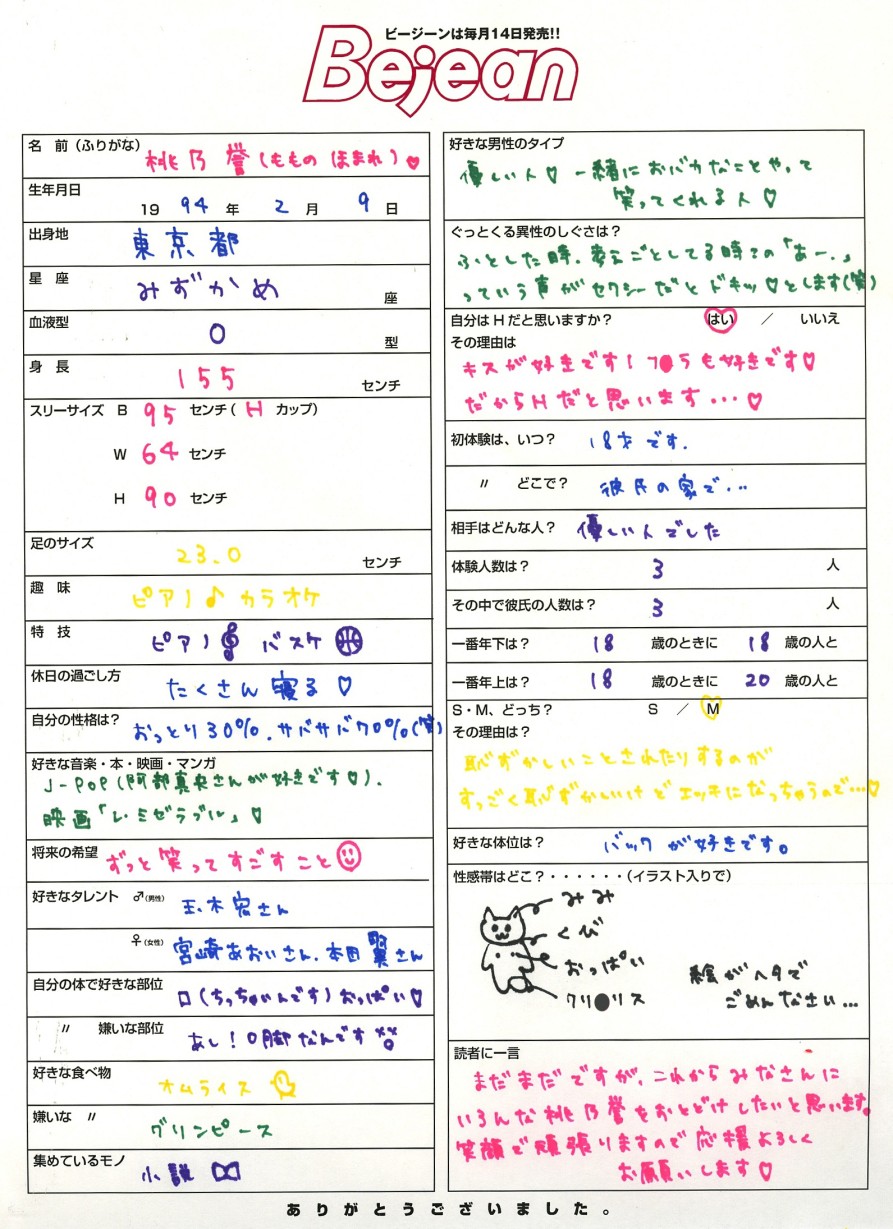 ビージーンは毎月14日発売!!
Bejean
名 前 (ふりがな) 桃乃 誉 (ももの ほまれ) ♡
生年月日
19 94 年 2 月 9 日
出身地 東京都
星 座 みずがめ 座
血液型 O 型
身 長 155 センチ
スリーサイズ B 95 センチ( H カップ)
W 64 センチ
H 90 センチ
足のサイズ 23.0 センチ
趣 味 ピアノ♪ カラオケ
特 技 ピアノ バスケ
休日の過ごし方 たくさん 寝る ♡
自分の性格は? おっとり30%.サバサバ70%(笑)
好きな音楽・本・映画・マンガ
J-POP(阿部真央さんが好きです♡).
映画「レ・ミゼラブル」♡
将来の希望 ずっと笑ってすごすこと
好きなタレント ♂(男性) 玉木宏さん
♀(女性) 宮崎あおいさん.本田翼さん
自分の体で好きな部位 口(ちっちゃいんです)おっぱい♡
〃 嫌いな部位 あし!O脚なんです
好きな食べ物 オムライス
嫌いな 〃 グリンピース
集めているモノ 小説
好きな男性のタイプ
優しい人♡ 一緒におバカなことやって
笑ってくれる人♡
ぐっとくる異性のしぐさは?
ふとした時.考えごとしてる時での「あー.」
っていう声がセクシーだとドキッ♡とします(笑)
自分はHだと思いますか? はい / いいえ
その理由は
キスが好きです!フ●ラも好きです♡
だからHだと思います...♡
初体験は、いつ? 18才です.
〃 どこで? 彼氏の家で...
相手はどんな人? 優しい人でした
体験人数は? 3 人
その中で彼氏の人数は? 3 人
一番年下は? 18 歳のときに 18 歳の人と
一番年上は? 18 歳のときに 20 歳の人と
S・M、どっち? S / M
その理由は?
恥ずかしいことされたりするのが
すっごく恥ずかしいけどエッチになっちゃうので...♡
好きな体位は? バックが好きです。
性感帯はどこ?・・・・・・(イラスト入りで)
みみ
くび
おっぱい
クリ●リス
絵がヘタで
ごめんなさい...
読者に一言
まだまだですが、これからみなさんに
いろんな桃乃誉をおとどけしたいと思います。
笑顔で頑張りますので応援よろしく
お願いします♡
ありがとうございました。